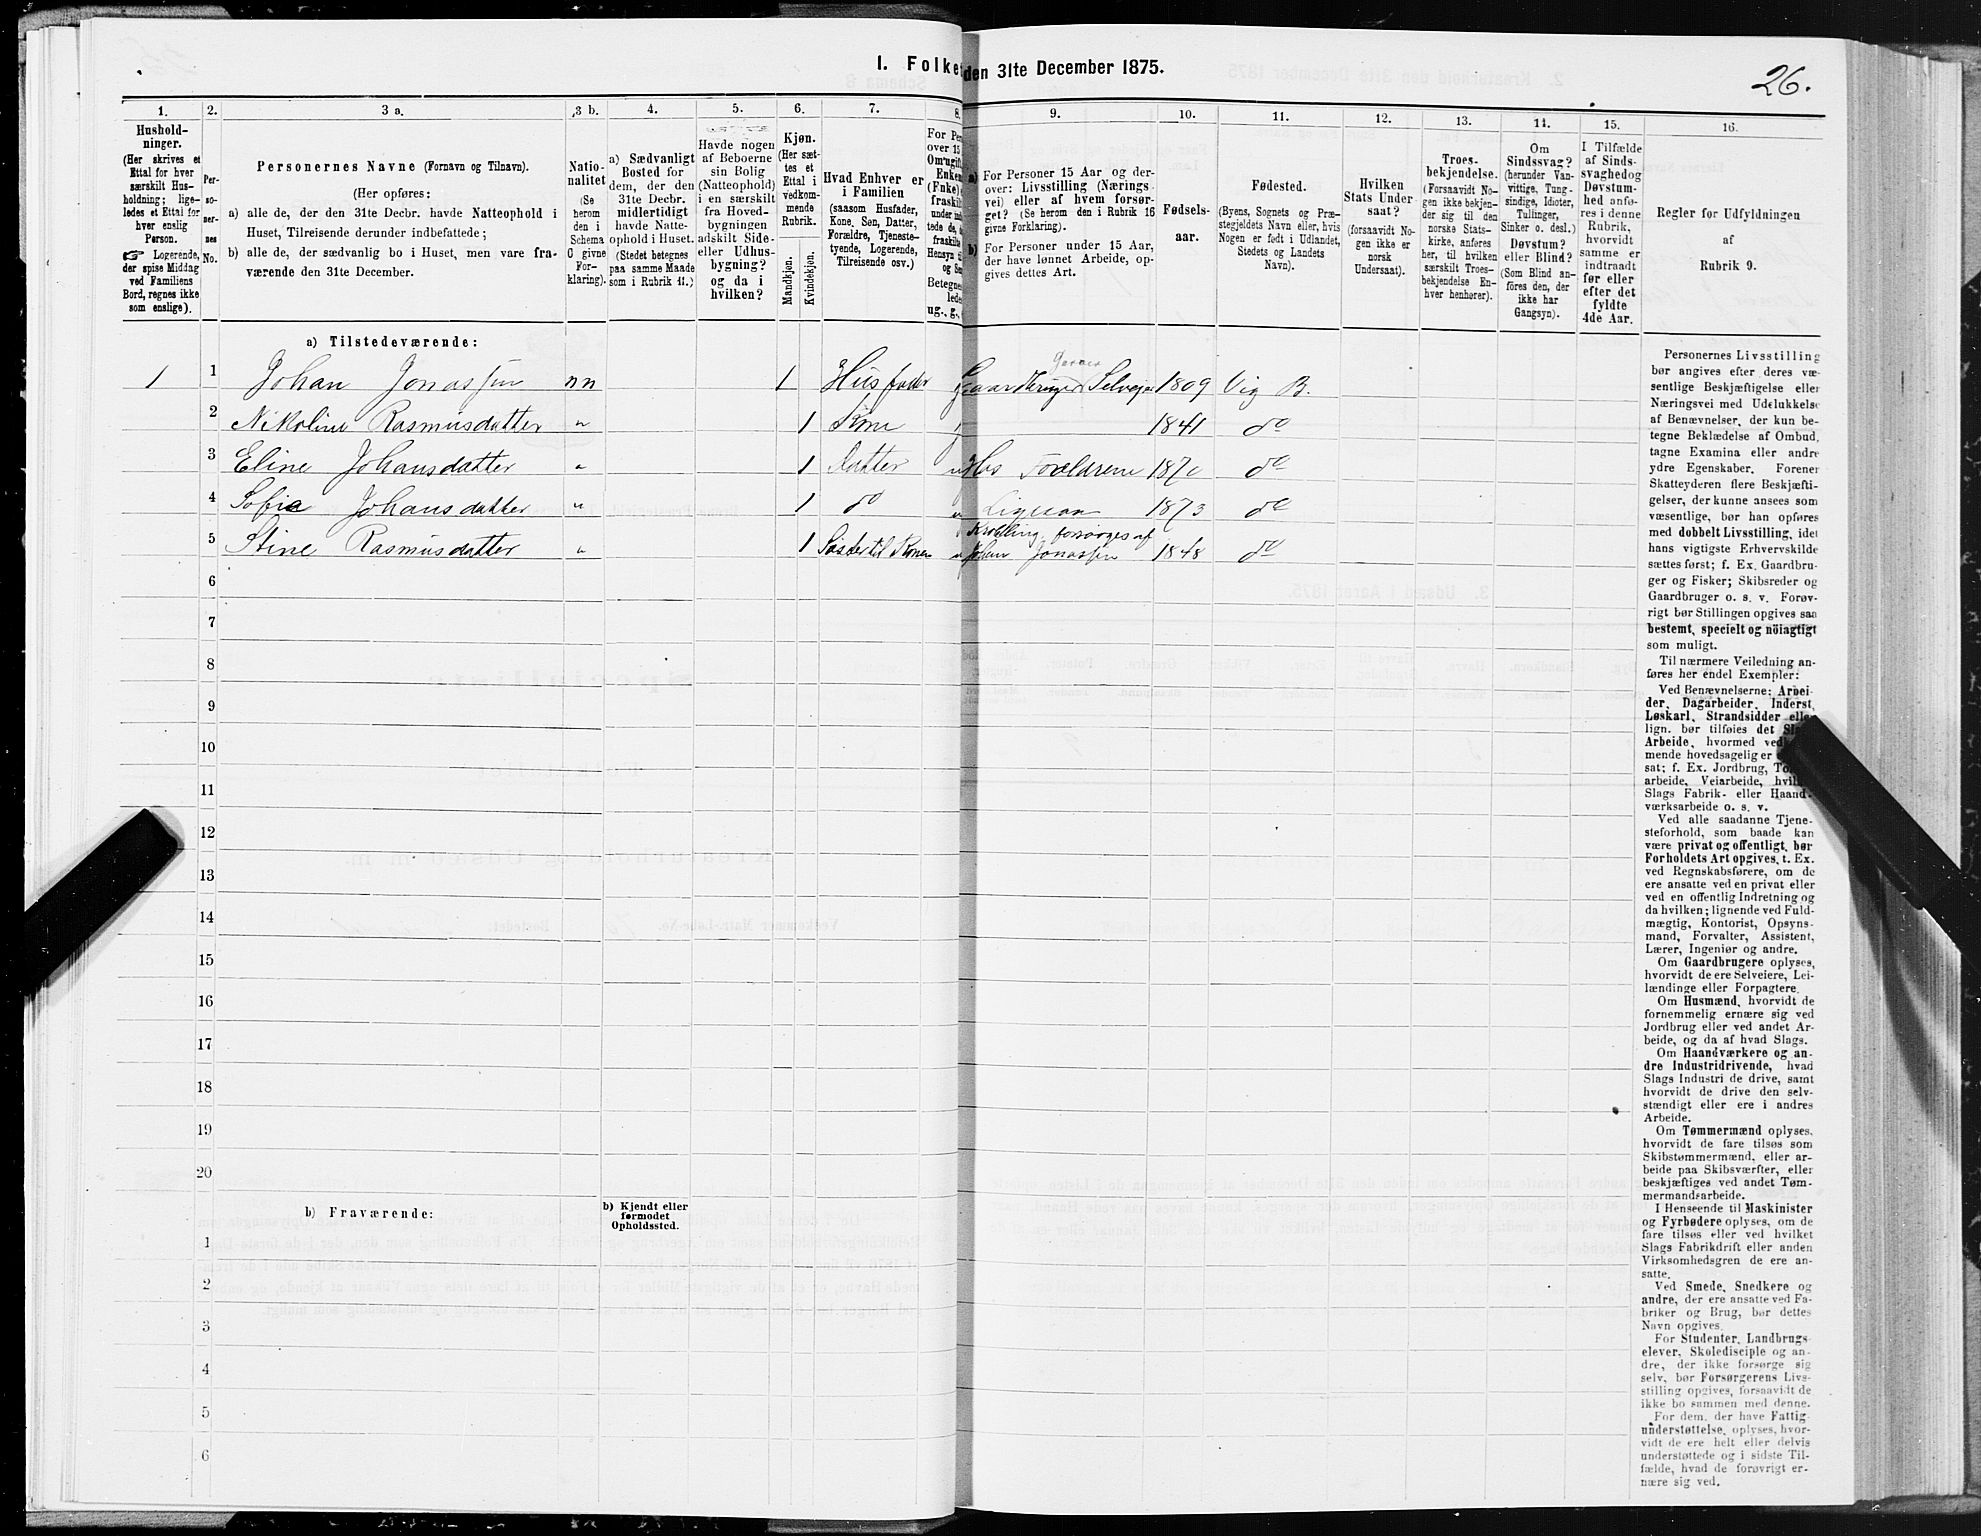 I. Folket den 31te December 1875.
26.
1.
2.
3 a.
3 b.
4.
5.
6.
7.
8.
9.
10.
11.
12.
13.
14.
15.
16.
Hushold-
ninger.
(Her skrives et
Ettal for hver
særskilt Hus-
holdning; lige-
ledes et Ettal for
hver enslig
Person.
☞ Logerende,
der spise Middag
ved Familiens
Bord, regnes ikke
som enslige).
Per-
so-
ner-
nes
No.
Personernes Navne (Fornavn og Tilnavn).
(Her opføres:
a) alle de, der den 31te Decbr. havde Natteophold i
Huset, Tilreisende derunder indbefattede;
b) alle de, der sædvanlig bo i Huset, men vare fra-
værende den 31te December.
Natio-
nalitet
(Se
herom
den i
Schema
C givne
For-
klaring).
a) Sædvanligt
Bosted for
dem, der den
31te Decbr.
midlertidigt
havde Natte-
ophold i Huset.
(Stedet betegnes
paa samme Maade
som i Rubrik 11.)
Havde nogen
af Beboerne
sin Bolig
(Natteophold)
i en særskilt
fra Hoved-
bygningen
adskilt Side-
eller Udhus-
bygning?
og da i
hvilken?
Kjøn.
(Her sæt-
tes et
Ettal i
vedkom-
mende
Rubrik.
Mandkjøn.
Kvindekjøn.
Hvad Enhver er
i Familien
(saasom Husfader,
Kone, Søn, Datter,
Forældre, Tjeneste-
tyende, Logerende,
Tilreisende osv.)
For Per
over 15
Om ugift
Enken
(Enke)
fraskilt
under ind
tede de,
fraskilte
Hensyn til
og Se
Betegne
lede
ug., g.,
a) For Personer 15 Aar og der-
over: Livsstilling (Nærings-
vei) eller af hvem forsør-
get? (Se herom den i Rubrik 16
givne Forklaring).
b) For Personer under 15 Aar,
der have lønnet Arbeide, op-
gives dettes Art.
Fødsels-
aar.
Fødested.
(Byens, Sognets og Præ-
stegjeldets Navn eller, hvis
Nogen er født i Udlandet,
Stedets og Landets
Navn).
Hvilken
Stats Under
saat?
(forsaavidt No-
gen ikke er
norsk
Undersaat).
Troes-
bekjendelse.
(Forsaavidt No-
gen ikke bekjen-
der sig til den
norske Stats-
kirke, anføres
her, til hvilken
særskilt Troes-
bekjendelse En-
hver henhører).
Om
Sindssvag?
(herunder Van-
vittige, Tung-
sindige, Idioter,
Tullinger,
Sinker o. desl.)
Døvstum?
eller Blind?
(Som Blind an-
føres den, der
ikke har
Gangsyn).
I Tilfælde
af Sinds-
svaghed og
Døvstum-
hed anfø-
res i denne
Rubrik,
hvorvidt
samme er
indtraadt
før eller
efter det
fyldte
4de Aar.
Regler for Udfyldningen
af
Rubrik 9.
a) Tilstedeværende:
1 1 Johan Jonassen nn 1 Husfader g Gaardbruger Selveier 1809 Vig B.
2 Nikoline Rasmusdatter " 1 Kone 1841 do
3 Eline Johansdatter " 1 Datter u Hos Forældrene 1870 do
4 Sofie Johansdatter " 1 do u Ligesaa 1873 do
5 Stine Rasmusdatter " 1 Søster til Konen u Krøbling, forsørges af Johan Jonassen 1848 do
6
7
8
9
10
11
12
13
14
15
16
17
18
19
20
b) Fraværende:
b) Kjendt eller
formodet
Opholdssted.
1
2
3
4
5
6
Personernes Livsstilling
bør angives efter deres væ-
sentlige Beskjæftigelse eller
Næringsvei med Udelukkelse
af Benævnelser, der kun be-
tegne Beklædelse af Ombud,
tagne Examina eller andre
ydre Egenskaber. Forener
Skatteyderen flere Beskjæfti-
gelser, der kunne ansees som
væsentlige, bør han opføres
med dobbelt Livsstilling, idet
hans vigtigste Erhvervskilde
sættes først; f. Ex. Gaardbru-
ger og Fisker; Skibsreder og
Gaardbruger o. s. v. Forøv-
rigt bør Stillingen opgives saa
bestemt, specielt og nöiagtigt
som muligt.
Til nærmere Veiledning an-
føres her endel Exempler:
Ved Benævnelserne: Arbei-
der, Dagarbeider, Inderst,
Løskarl, Strandsidder eller
lign. bør tilføies det Slags
Arbeide, hvormed vedkom-
mende hovedsagelig er
sat; f. Ex. Jordbrug, Tom-
arbeide, Veiarbeide, hvilket
Slags Fabrik- eller Haand-
værksarbeide o. s. v.
Ved alle saadanne Tjene-
steforhold, som baade kan
være privat og offentligt, bør
Forholdets Art opgives, t. Ex.
ved Regnskabsførere, om de
ere ansatte ved en privat eller
ved en offentlig Indretning og
da hvilken; lignende ved Fuld-
mægtig, Kontorist, Opsyns-
mand, Forvalter, Assistent,
Lærer, Ingeniør og andre.
Om Gaardbrugere oplyses,
hvorvidt de ere Selveiere, Lei-
lændinge eller Forpagtere.
Om Husmænd, hvorvidt de
fornemmelig ernære sig ved
Jordbrug eller ved andet Ar-
beide, og da af hvad Slags.
Om Haandværkere og an-
dre Industridrivende, hvad
Slags Industri de drive, samt
hvorvidt de drive den selv-
stændigt eller ere i andres
Arbeide.
Om Tømmermænd oplyses,
hvorvidt de fare tilsøs som
Skibstømmermænd, eller ar-
beide paa Skibsværfter, eller
beskjæftiges ved andet Tøm-
mermandsarbeide.
I Henseende til Maskinister
og Fyrbødere oplyses, om de
fare tilsøs eller ved hvilket
Slags Fabrikdrift eller anden
Virksomhedsgren de ere an-
satte.
Ved Smede, Snedkere og
andre, der ere ansatte ved Fa-
briker og Brug, bør dettes
Navn opgives.
For Studenter, Landbrugs-
elever, Skoledisciple og an-
dre, der ikke forsørge sig
selv, bør Forsørgerens Livs-
stilling opgives, forsaavidt de
ikke bo sammen med denne.
For dem, der have Fattig-
understøttelse, oplyses, hvor-
vidt de ere helt eller delvis
understøttede og i sidste Til-
fælde, hvad de forøvrigt er-
nære sig ved.